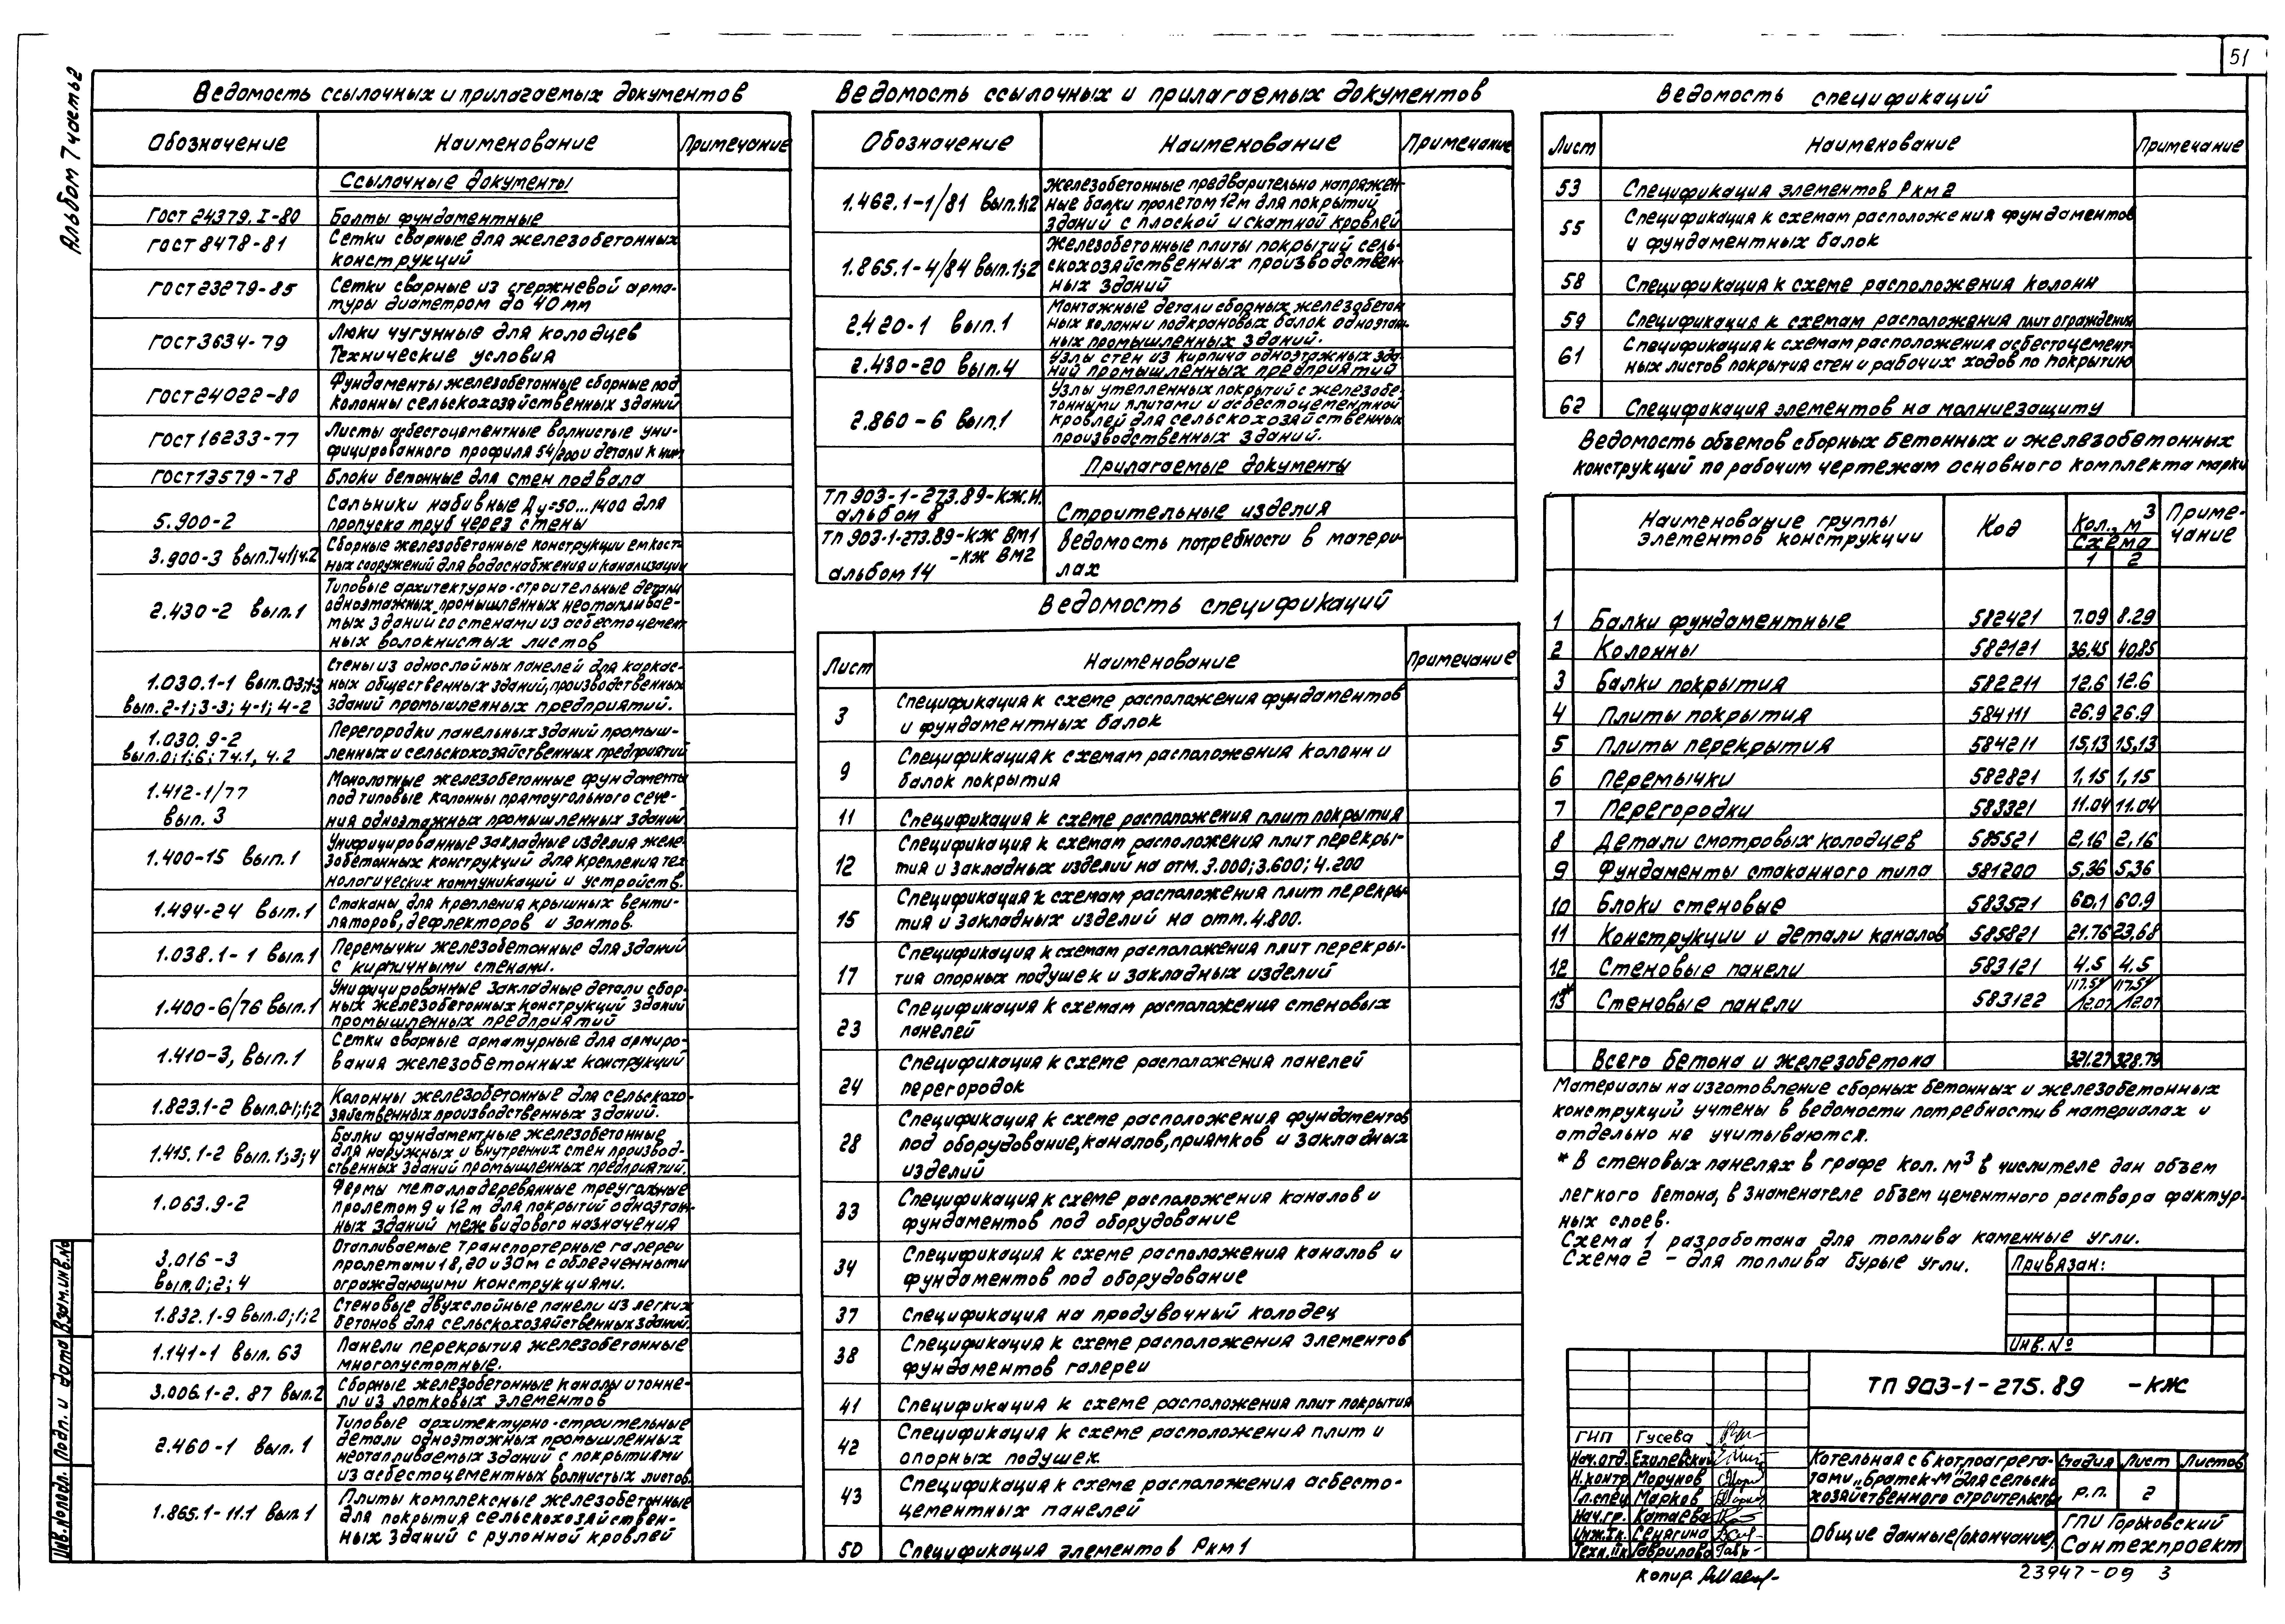 51
Альбом 7 часть 2
Ведомость ссылочных и прилагаемых документов
Обозначение Наименование Примечание
Ссылочные документы
ГОСТ 24379.I-80 Болты фундаментные
ГОСТ 8478-81 Сетки сварные для железобетонных
конструкций
ГОСТ 23279-85 Сетки сварные из стержневой арма-
туры диаметром до 40мм
ГОСТ 3634-79 Люки чугунные для колодцев
Технические условия
ГОСТ 24022-80 Фундаменты железобетонные сборные под
колонны сельскохозяйственных зданий
ГОСТ 16233-77 Листы асбестоцементные волнистые уни-
фицированного профиля 54/200 и детали к ним
ГОСТ 13579-78 Блоки бетонные для стен подвала
5.900-2 Сальники набивные Ду=50...1400 для
пропуска труб через стены
3.900-3 вып.7ч1;ч.2 Сборные железобетонные конструкции емкост-
ных сооружений для водоснабжения и канализации
2.430-2 вып.1 Типовые архитектурно-строительные детали
одноэтажных промышленных неотапливае-
мых зданий со стенами из асбестоцемент
ных волокнистых листов
1.030.1-1 вып.0-3;1-3
вып. 2-1; 3-3; 4-1; 4-2
Стены из однослойных панелей для каркас-
ных общественных зданий, производственных
зданий промышленных предприятий.
1.030.9-2
вып.0;1;6;7ч.1, ч.2
Перегородки панельных зданий промыш-
ленных и сельскохозяйственных предприятий
1.412-1/77
вып. 3
Монолитные железобетонные фундаменты
под типовые колонны прямоугольного сече-
ния одноэтажных промышленных зданий
1.400-15 вып.1 Унифицированные закладные изделия желе-
зобетонных конструкций для крепления тех
нологических коммуникаций и устройств.
1.494-24 вып.1 Стаканы для крепления крышных венти-
ляторов, дефлекторов и зонтов.
1.038.1-1 вып.1 Перемычки железобетонные для зданий
с кирпичными стенами.
1.400-6/76 вып.1 Унифицированные закладные детали сбор-
ных железобетонных конструкций зданий
промышленных предприятий
1.410-3, вып.1 Сетки сварные арматурные для армиро-
вания железобетонных конструкций
1.823.1-2 вып.0-1;1;2 Колонны железобетонные для сельскохо-
зяйственных производственных зданий.
1.415.1-2 вып.1;3;4 Балки фундаментные железобетонные
для наружных и внутренних стен производ-
ственных зданий промышленных предприятий.
1.063.9-2 Фермы металлодеревянные треугольные
пролетом 9 и 12 м для покрытий одноэтаж-
ных зданий межвидового назначения
3.016-3
вып.0; 2; 4
Отапливаемые транспортерные галереи
пролетами 18, 20 и 30м с облегченными
ограждающими конструкциями.
1.832.1-9 вып.0;1;2 Стеновые двухслойные панели из легких
бетонов для сельскохозяйственных зданий.
1.141-1 вып. 63 Панели перекрытия железобетонные
многопустотные.
3.006.1-2. 87 вып.2 Сборные железобетонные каналы и тонне-
ли из лотковых элементов
2.460-1 вып. 1 Типовые архитектурно-строительные
детали одноэтажных промышленных
неотапливаемых зданий с покрытиями
из асбестоцементных волнистых листов.
1.865.1-11.1 вып.1 Плиты комплексные железобетонные
для покрытия сельскохозяйствен-
ных зданий с рулонной кровлей
Ведомость ссылочных и прилагаемых документов
Обозначение Наименование Примечание
1.462.1-1/81 вып.1;2 Железобетонные предварительно напряжен-
ные балки пролетом 12м для покрытий
зданий с плоской и скатной кровлей
1.865.1-4/84 вып.1;2 Железобетонные плиты покрытий сель-
скохозяйственных производствен-
ных зданий
2.420-1 вып.1 Монтажные детали сборных железобетон
ных колонн и подкрановых балок одноэтаж-
ных промышленных зданий.
2.430-20 вып.4 Узлы стен из кирпича одноэтажных зда-
ний промышленных предприятий
2.860-6 вып.1 Узлы утепленных покрытий с железобе-
тонными плитами и асбестоцементной
кровлей для сельскохозяйственных
производственных зданий.
Прилагаемые документы
ТП 903-1-273.89-КЖ.И.
альбом 8
Строительные изделия
ТП 903-1-273.89-КЖ ВМ1
-КЖ ВМ2
альбом 14
Ведомость потребности в матери-
лах
Ведомость спецификаций
Лист Наименование Примечание
3 Спецификация к схеме расположения фундаментов
и фундаментных балок
9 Спецификация к схемам расположения колонн и
балок покрытия
11 Спецификация к схеме расположения плит покрытия
12 Спецификация к схемам расположения плит перекры-
тия и закладных изделий на отм. 3.000; 3.600; 4.200
15 Спецификация к схемам расположения плит перекры
тия и закладных изделий на отм. 4.800.
17 Спецификация к схемам расположения плит перекры-
тия опорных подушек и закладных изделий
23 Спецификация к схемам расположения стеновых
панелей
24 Спецификация к схеме расположения панелей
перегородок
28 Спецификация к схеме расположения фундаментов
под оборудование, каналов, приямков и закладных
изделий
33 Спецификация к схеме расположения каналов и
фундаментов под оборудование
34 Спецификация к схеме расположения каналов и
фундаментов под оборудование
37 Спецификация на продувочный колодец
38 Спецификация к схеме расположения элементов
фундаментов галереи
41 Спецификация к схеме расположения плит покрытия
42 Спецификация к схеме расположения плит и
опорных подушек
43 Спецификация к схеме расположения асбесто-
цементных панелей
50 Спецификация элементов Ркм1
Ведомость спецификаций
Лист Наименование Примечание
53 Спецификация элементов Ркм2
55 Спецификация к схемам расположения фундаментов
и фундаментных балок
58 Спецификация к схеме расположения колонн
59 Спецификация к схемам расположения плит ограждения
61 Спецификация к схемам расположения асбестоцемент-
ных листов покрытия стен и рабочих ходов по покрытию
62 Спецификация элементов на молниезащиту
Ведомость объемов сборных бетонных и железобетонных
конструкций по рабочим чертежам основного комплекта марки
Наименование группы
элементов конструкции
Код Кол., м3 Приме-
чание
Схема
1 2
1 Балки фундаментные 582421 7.09 8.29
2 Колонны 582121 36.45 40.85
3 Балки покрытия 582211 12.6 12.6
4 Плиты покрытия 584111 26.9 26.9
5 Плиты перекрытия 584211 15,13 15,13
6 Перемычки 582821 1,15 1,15
7 Перегородки 583321 11.04 11.04
8 Детали смотровых колодцев 585521 2,16 2,16
9 Фундаменты стаканного типа 581200 5,36 5,36
10 Блоки стеновые 583521 60.1 60.9
11 Конструкции и детали каналов 585821 21.76 23,68
12 Стеновые панели 583121 4.5 4.5
13* Стеновые панели 583122 117.54/12.07 117.54/12.07
Всего бетона и железобетона 321.27 328.79
Материалы на изготовление сборных бетонных и железобетонных
конструкций учтены в ведомости потребности в материалах и
отдельно не учитываются.
* В стеновых панелях в графе кол. м3 в числителе дан объем
легкого бетона, в знаменателе объем цементного раствора фактур-
ных слоев.
Схема 1 разработана для топлива каменные угли.
Схема 2 - для топлива бурые угли.
Привязан:
Инв. №
ТП 903-1-275.89 -КЖ
ГИП Гусева
Нач.отд. Ехилевский
Н.контр. Морунов
Гл.спец. Марков
Нач.гр. Катаева
Инж.Iк. Сенягина
Техн.IIк Гаврилова
Котельная с 6 котлоагрега-
тами „Братск-М" для сельско
хозяйственного строительства
Стадия Лист Листов
Р.П. 2
Общие данные (окончание).
ГПИ Горьковский
Сантехпроект
Копир.
23947-09 3
Инв. № подл. Подп. и дата Взам.инв.№